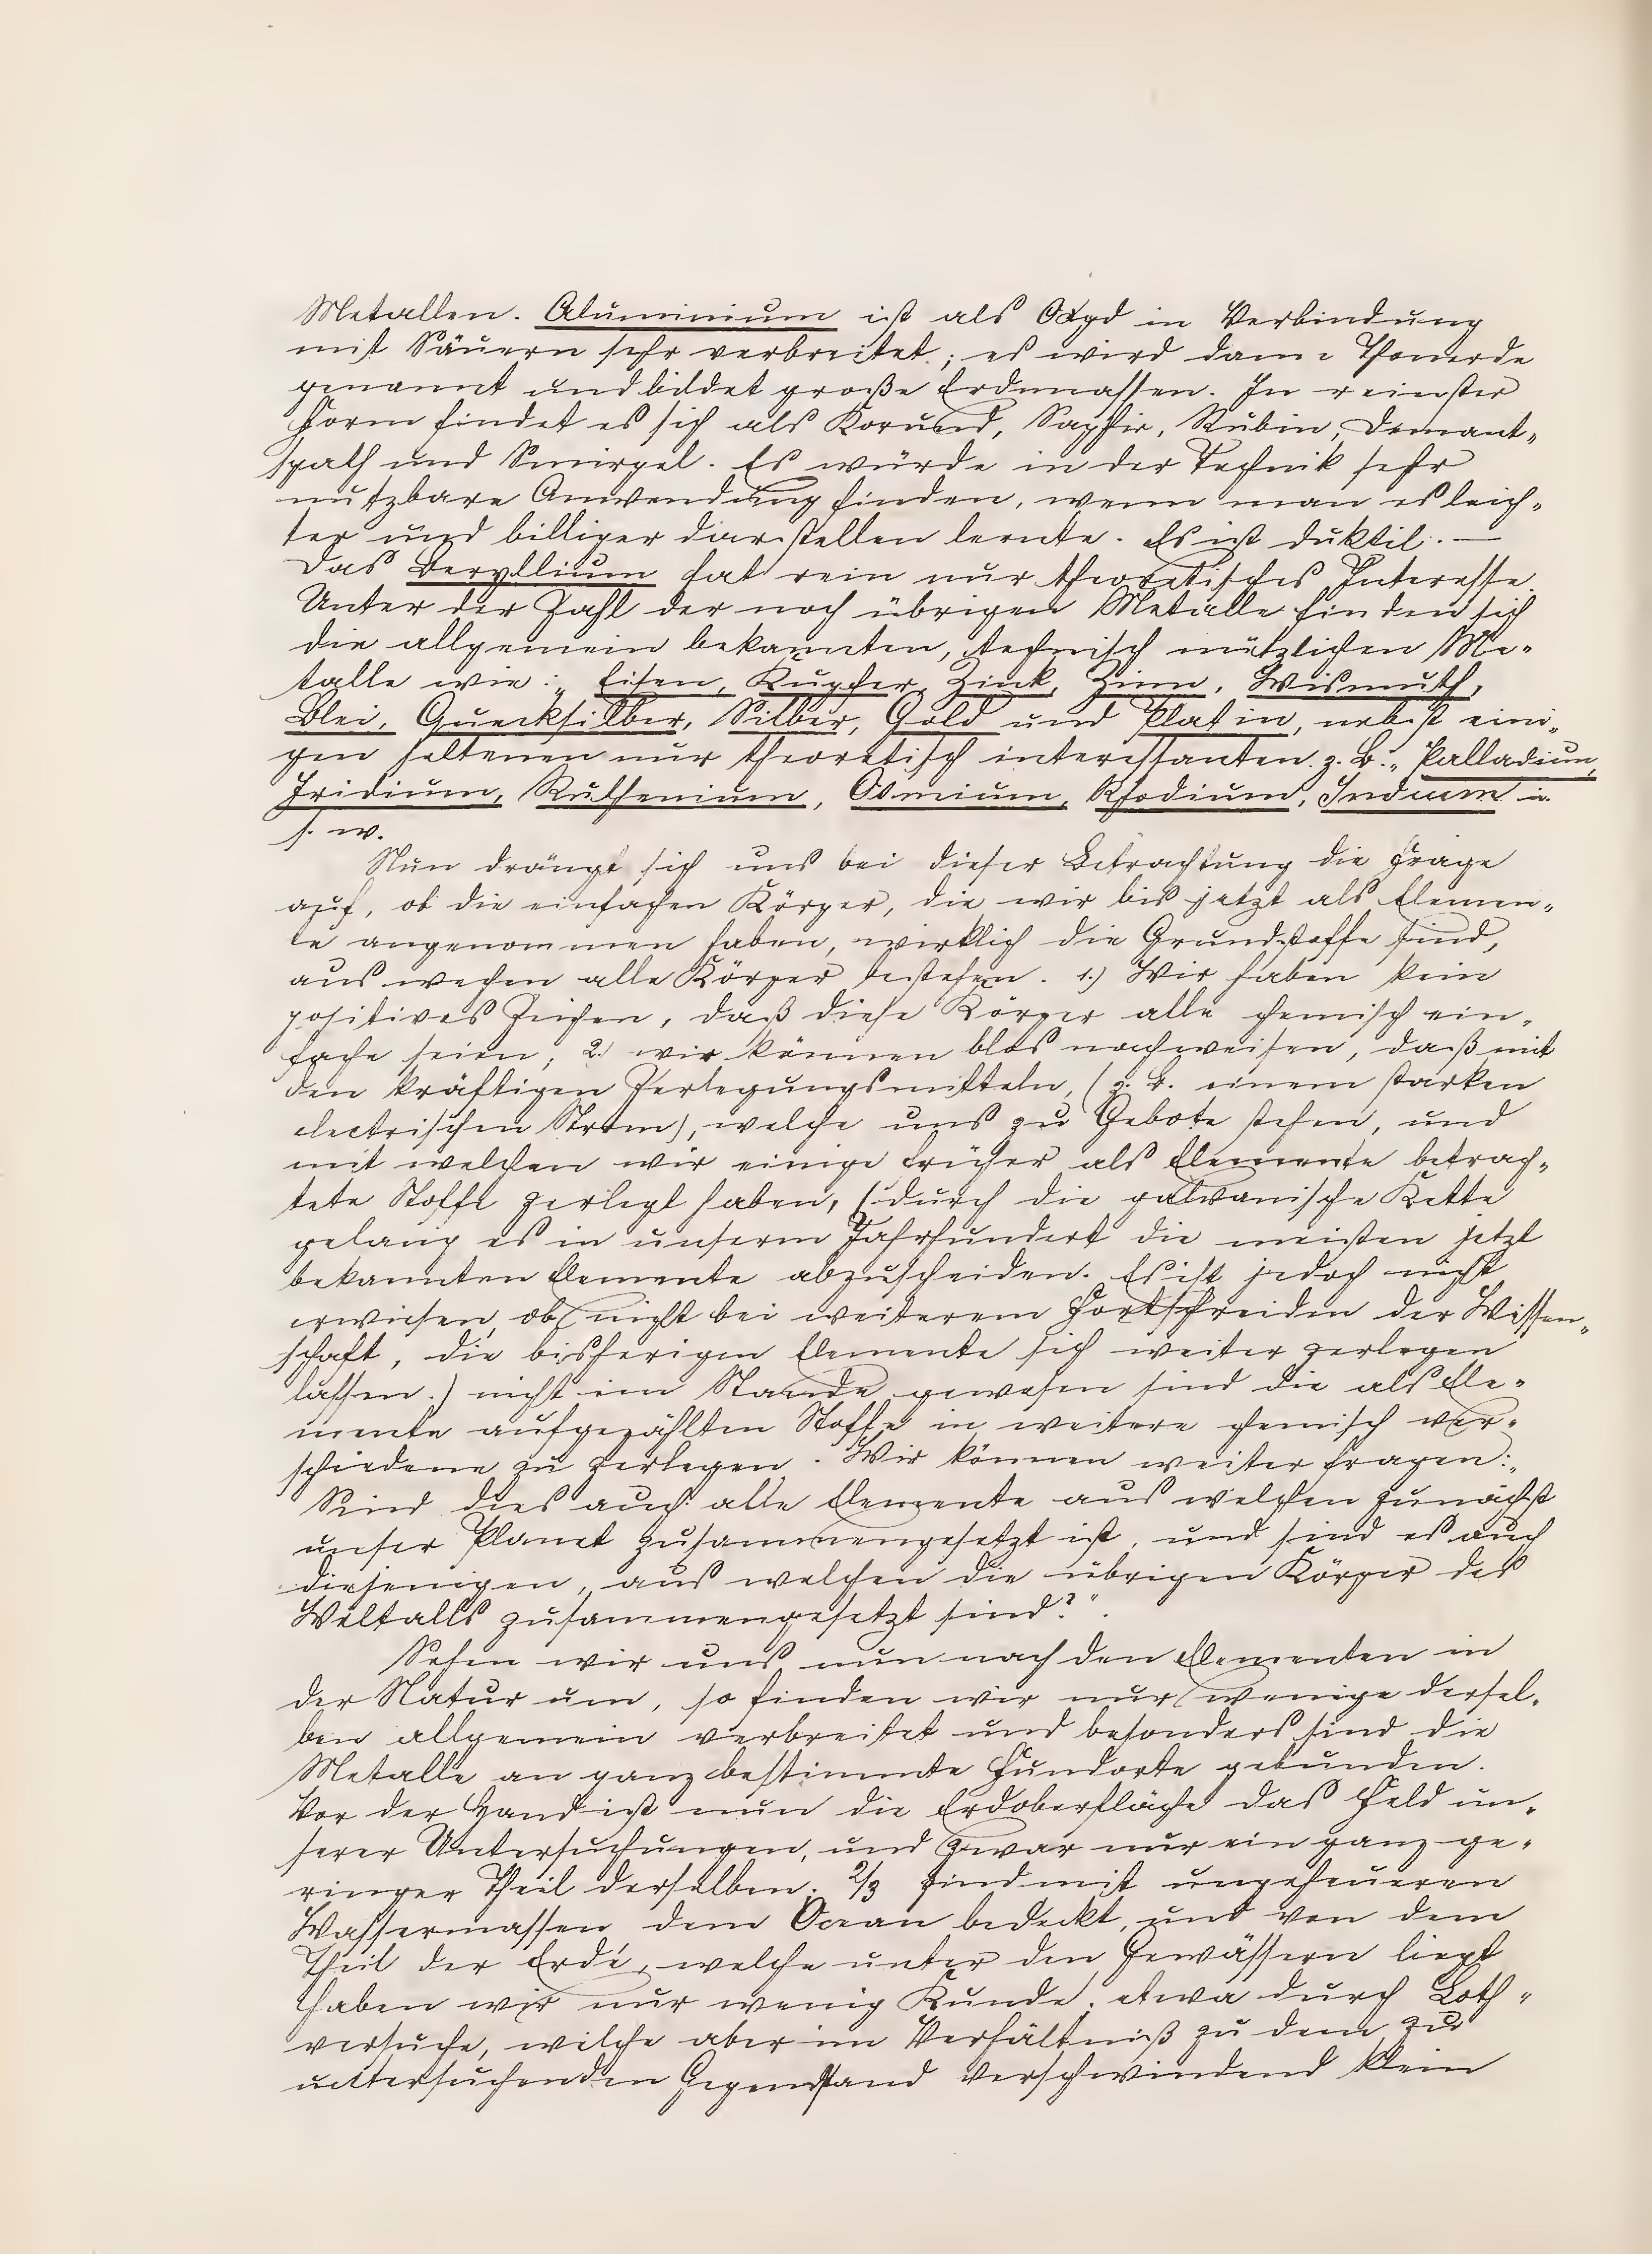 Metallen. Aluminium ist als Oxyd in Verbindung
mit Säuern sehr verbreitet; es wird dann Thonerde
genannt und bildet große Erdmassen. In reinster
Form findet es sich als Korund, Saphir, Rubin, Demant-
spath und Smirgel. Es würde in der Technik sehr
nutzbare Anwendung finden, wenn man es leich-
ter und billiger darstellen lernte. Es ist duktil. —
Das Beryllium hat rein nur theoretisches Interesse.
Unter der Zahl der noch übrigen Metalle finden sich
die allgemein bekannten, technisch nützlichen Me-
talle wie: „Eisen, Kupfer, Zink, Zinn, Wismuth,
Blei, Quecksilber, Silber, Gold und Platin, nebst eini-
gen seltenen nur theoretisch interessanten z. B.: „Palladium,
Iridium, Ruthenium, Osmium, Rhodium, Indium u.
s. w.
Nun drängt sich uns bei dieser Betrachtung die Frage
auf, ob die einfachen Körper, die wir bis jetzt als Elemen-
te angenommen haben, wirklich die Grundstoffe sind,
aus wechen alle Körper bestehen. 1.) Wir haben kein
positives Zeichen, daß diese Körper alle chemisch ein-
fache seien; 2.) wir können blos nachweisen, daß mit
den kräftigen Zerlegungsmitteln, (z. B. einem starken
electrischen Strom), welche uns zu Gebote stehen, und
mit welchen wir einige früher als Elemente betrach-
tete Stoffe zerlegt haben, (durch die galvanische Kette
gelang es in unserm Jahrhundert die meisten jetzt
bekannten Elemente abzuscheiden. Es ist jedoch nicht
erwiesen, ob nicht bei weiterem Fortschreiden der Wissen-
schaft, die bisherigen Elemente sich weiter zerlegen
lassen.) nicht im Stande gewesen sind die als Ele-
mente aufgezählten Stoffe in weitere chemisch ver-
schiedene zu zerlegen. Wir können weiter fragen: „
Sind dies auch alle Elemente aus welchen zunächst
unser Planet zusammengesetzt ist, und sind es auch
diejenigen, aus welchen die übrigen Körper des
Weltalls zusammengesetzt sind?".
Sehen wir uns nun nach den Elementen in
der Natur um, so finden wir nur wenige dersel-
ben allgemein verbreitet und besonders sind die
Metalle an ganz bestimmte Fundorte gebunden.
Vor der Hand ist nun die Erdoberfläche das Feld un-
serer Untersuchungen, und zwar nur ein ganz ge-
ringer Theil derselben. 2/3 sind mit ungeheueren
Wassermassen dem Ocean bedeckt, und von dem
Theil der Erde, welche unter den Gewässern liegt
haben wir nur wenig Kunde, etwa durch Loth-
versuche, welche aber im Verhältniß zu dem zu
untersuchenden Gegenstand verschwindend klein